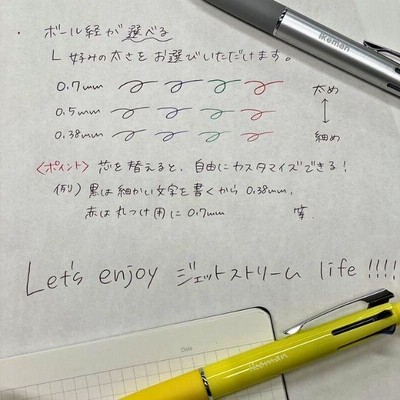 ・ボール経が選べる
└ 好みの太さをお選びいただけます。
ikeman
0.7mm 太め
0.5mm
0.38mm 細め
〈ポイント〉 芯を替えると、自由にカスタマイズできる!
例) 黒は細かい文字を書くから 0.38mm,
赤は丸つけ用に 0.7mm 等
Let's enjoy ジェットストリーム life!!!!
Date
ikeman